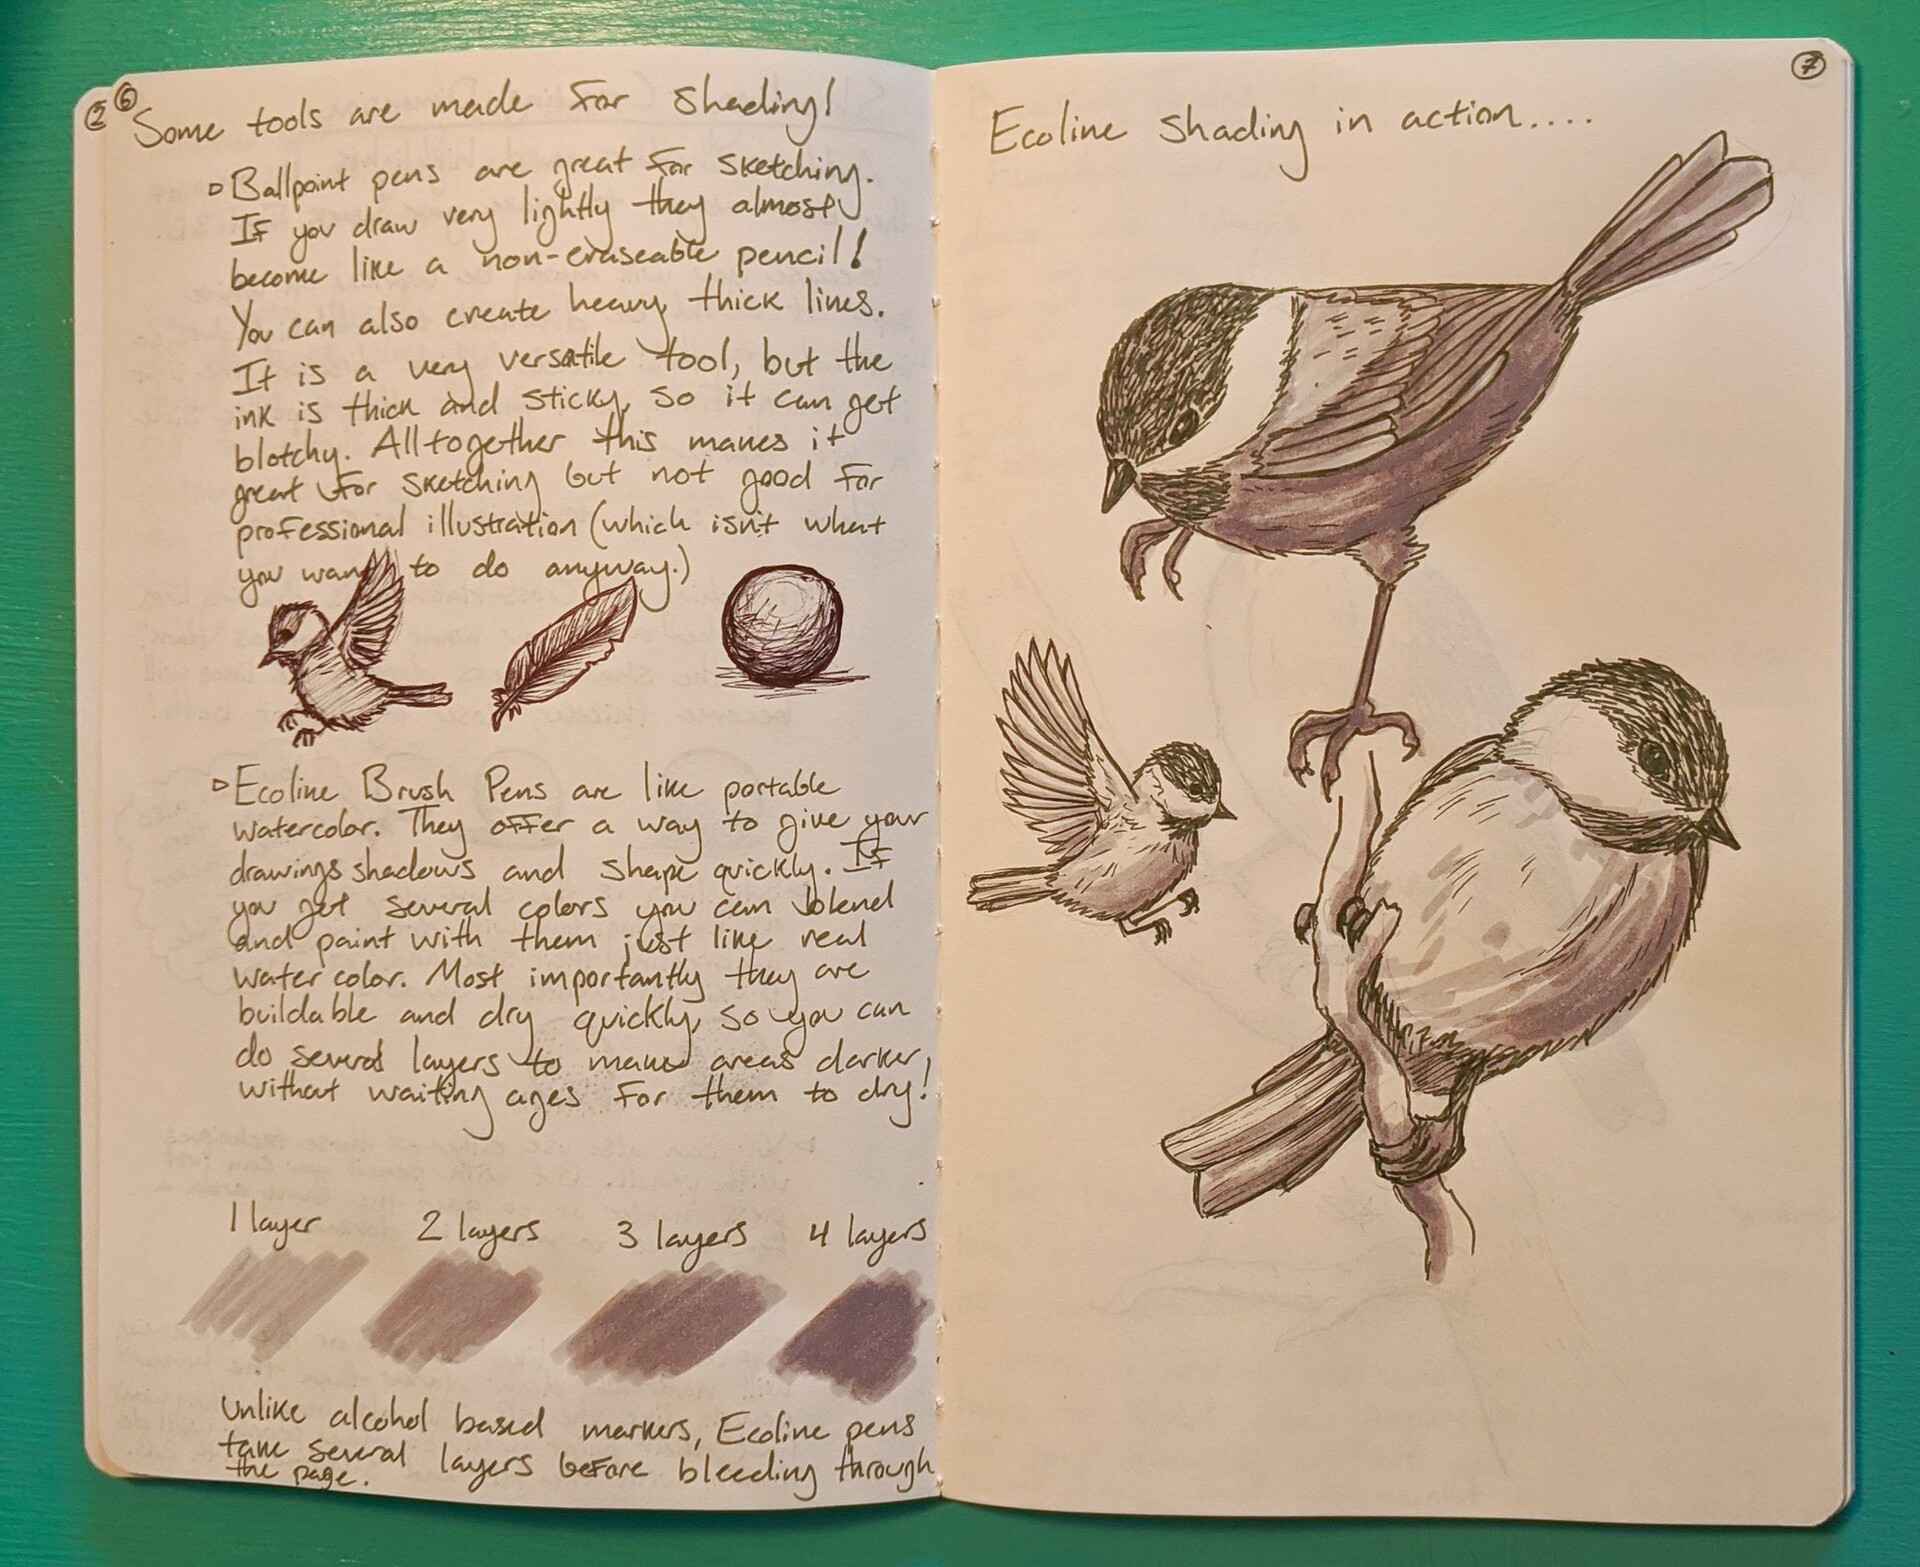 2 6
Some tools are made for shading!
▷ Ballpoint pens are great for sketching.
If you draw very lightly they almost
become like a non-eraseable pencil!
You can also create heavy, thick lines.
It is a very versatile tool, but the
ink is thick and sticky, so it can get
blotchy. Alltogether this makes it
great for sketching but not good for
professional illustration (which isn't what
you want to do anyway.)
▷ Ecoline Brush Pens are like portable
watercolor. They offer a way to give your
drawings shadows and shape quickly. If
you get several colors you can blend
and paint with them just like real
watercolor. Most importantly they are
buildable and dry quickly, so you can
do several layers to make areas darker,
without waiting ages for them to dry!
1 layer 2 layers 3 layers 4 layers
Unlike alcohol based markers, Ecoline pens
take several layers before bleeding through
the page.
7
Ecoline shading in action....